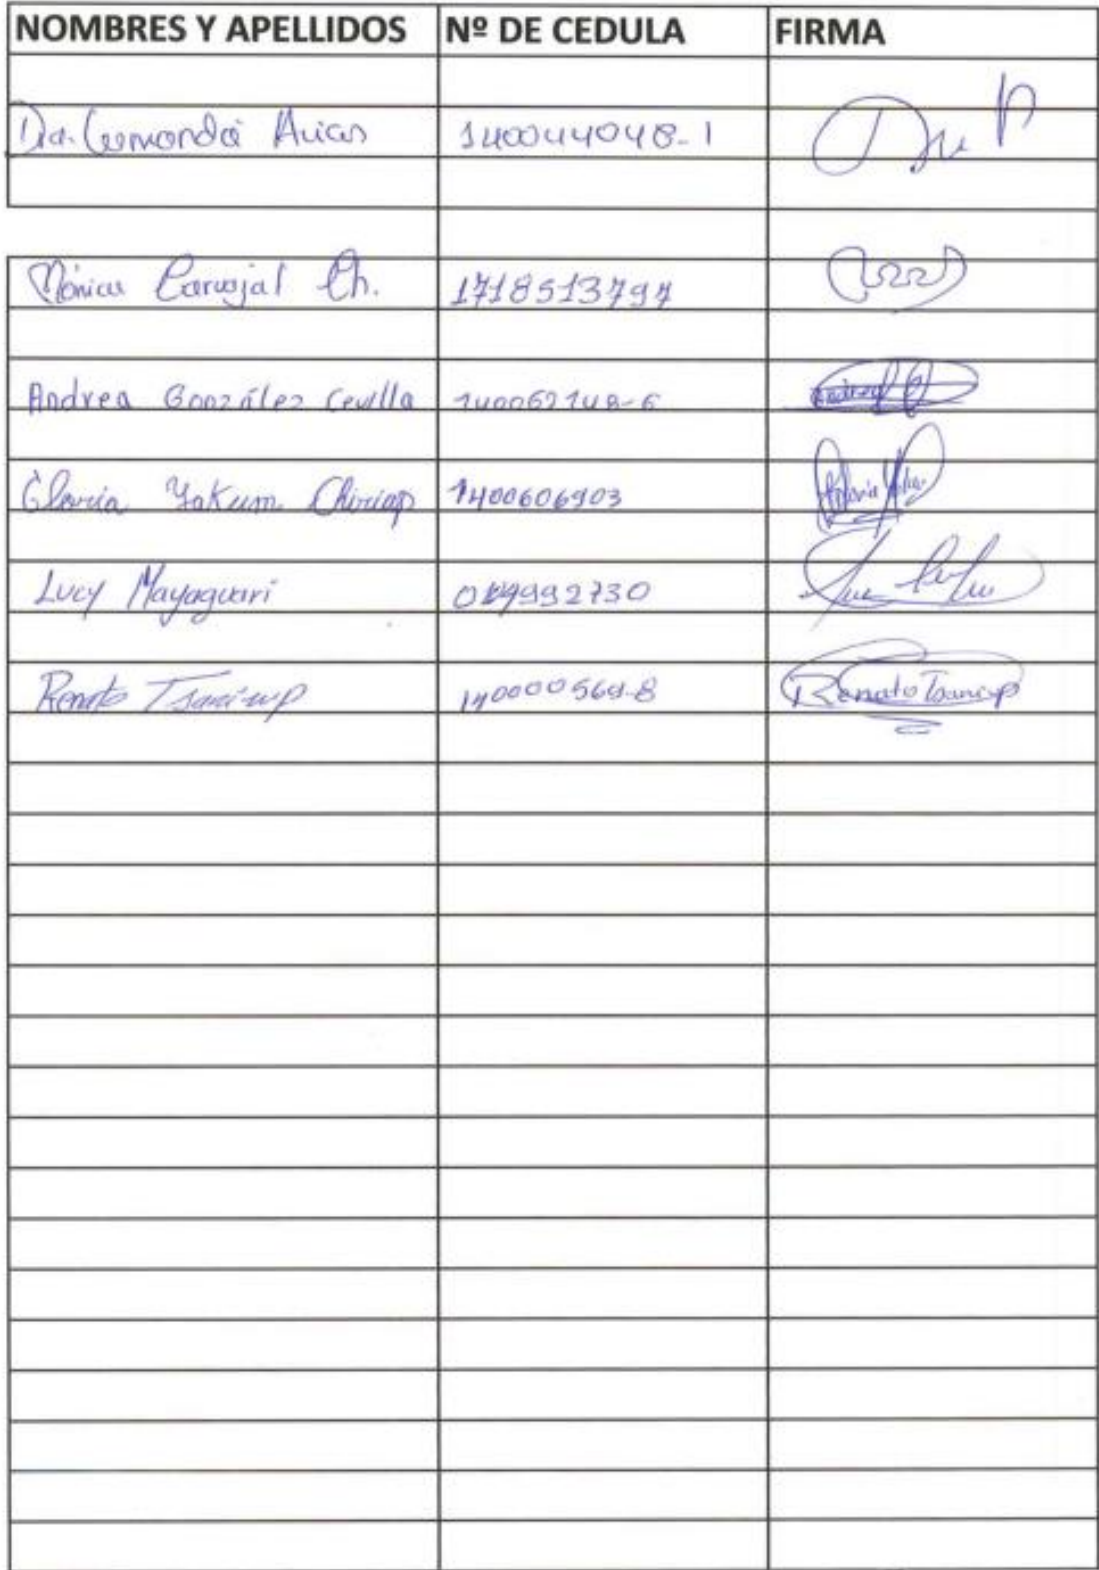 NOMBRES Y APELLIDOS Nº DE CEDULA FIRMA
Dra. Arias 140044048-1
Mónica Carvajal Ch. 1718513797
Andrea González Cevilla 140062148-6
Gloria Yakum Chiriap 1400606903
Lucy Mayaguari
Renato Tsamirap Renato Tsamirap